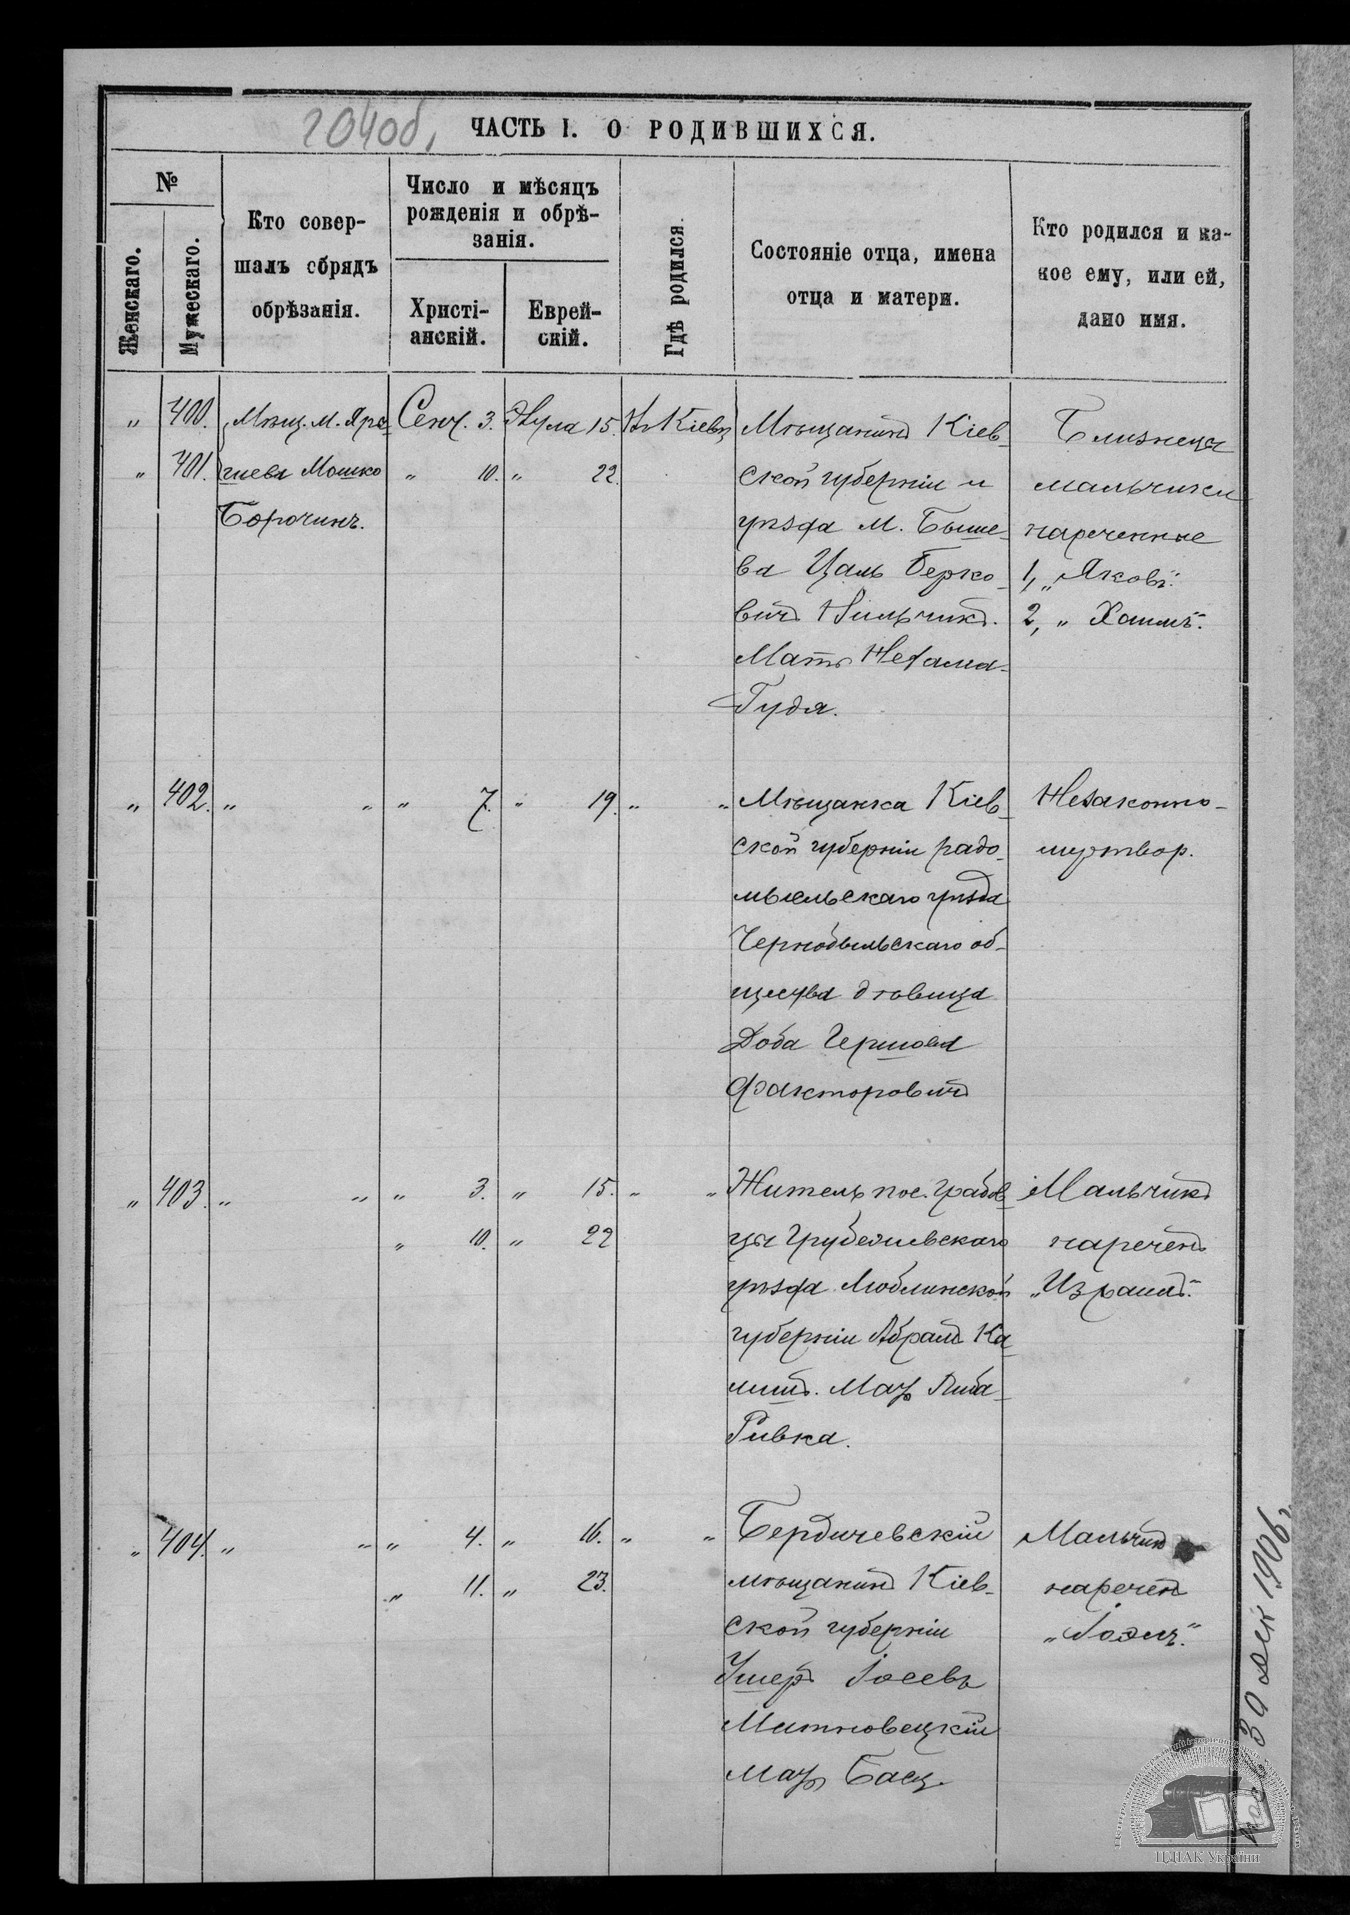 204об.
ЧАСТЬ I. О РОДИВШИХСЯ.
№
Женскаго.
Мужескаго.
Кто совер-
шалъ обрядъ
обрѣзанія.
Число и мѣсяцъ
рожденія и обрѣ-
занія.
Христі-
анскій.
Еврей-
скій.
Гдѣ родился
Состояніе отца, имена
отца и матери.
Кто родился и ка-
кое ему, или ей,
дано имя.
„ 400. Мѣщ. м.
„ 401.
Мошко
Борочинъ.
Сент. 3.
„ 10.
Элула 15.
„ 22.
Въ Кіевѣ
Мѣщанинъ Кіев-
ской губерніи и
уѣзда М. Быше-
ва Цаль Берко-
вичъ Нильчикъ.
Мать Нехама-
Гудя.
Близнецы
мальчики
нареченные
1, „Яковъ".
2, „Хаимъ".
„ 402. „ „ „ 7. „ 19. „ „
Мѣщанка Кіев-
ской губерніи радо-
мысльскаго уѣзда
Чернобыльскаго об-
щества дѣвица
Доба Гершова
Факторовичъ
Незаконно-
мертвор.
„ 403. „ „ „ 3. „ 15. „ „
„ 10. „ 22
Житель пос. Грабов-
цы Грубешевскаго
уѣзда Люблинской
губерніи Абрамъ Ка-
лишъ. Мать Либа-
Ривка.
Мальчикъ
нареченъ
„Израиль".
„ 404. „ „ „ 4. „ 16. „ „
„ 11. „ 23.
Бердичевскій
мѣщанинъ Кіев-
ской губерніи
Ушеръ Іосевъ
Махновецкій
мать Бася.
Мальчикъ
нареченъ
„Іоэль".
30 дек 1906 г.
ЦДІАК України